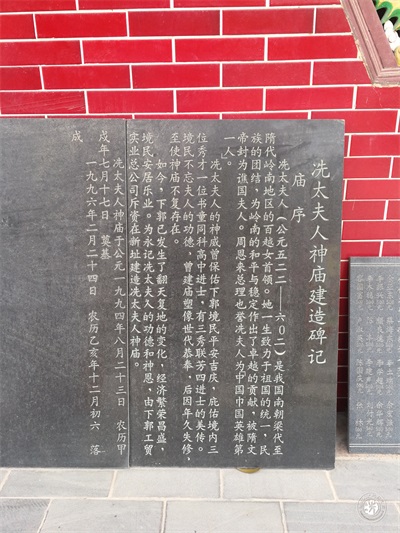 冼太夫人神庙建造碑记
庙序
冼太夫人（公元五二二——六〇二）是我国南朝梁代至
隋代岭南地区的百越女首领。她一生致力于祖国的统一，民
族的团结，为岭南的和平与稳定作出了卓越的贡献，被隋文
帝封为谯国夫人。周恩来总理也誉冼夫人为中国巾国英雄第
一人。
冼太夫人的神威曾保佑下郭境民平安吉庆，庇佑境内三
位秀才一位书童同科高中进士，有三秀联芳四进士的美传。
境民不忘夫人的功德，曾建庙塑像世代恭奉，后因年久失修，
至使神庙不复存在。
如今，下郭已发生了翻天复地的变化，经济繁荣昌盛，
境民安居乐业。为永记冼太夫人的功德和神恩，由下郭工贸
实业总公司斥资在新址建造冼太夫人神庙。
冼太夫人神庙于公元一九九四年八月二十三日 农历甲
戌年七月十七日 奠基
一九九六年二月二十四日 农历乙亥年十二月初六 落
成